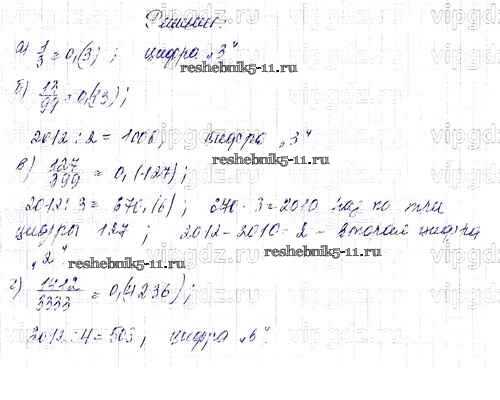 Решение.
а) 1/3 = 0,(3) ; цифра „3“
reshebnik5-11.ru
б) 13/99 = 0,(13) ;
2012 : 2 = 1006, цифра „3“
reshebnik5-11.ru
в) 127/999 = 0,(127) ;
2012 : 3 = 670,(6) ; 670 · 3 = 2010 по три
цифры 127 ; 2012 - 2010 = 2 - второй цифра
„2“
reshebnik5-11.ru
г) 1412/3333 = 0,(4236) ;
2012 : 4 = 503, цифра „6“.
reshebnik5-11.ru